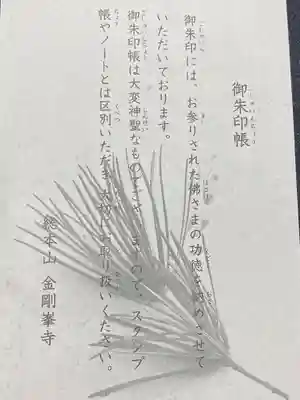 御朱印帳
御朱印には、お参りされた佛さまの功徳を納めさせて
いただいております。
御朱印帳は大変神聖なものでございますので、スタンプ
帳やノートとは区別いただき大切にお取り扱いください。
総本山 金剛峯寺